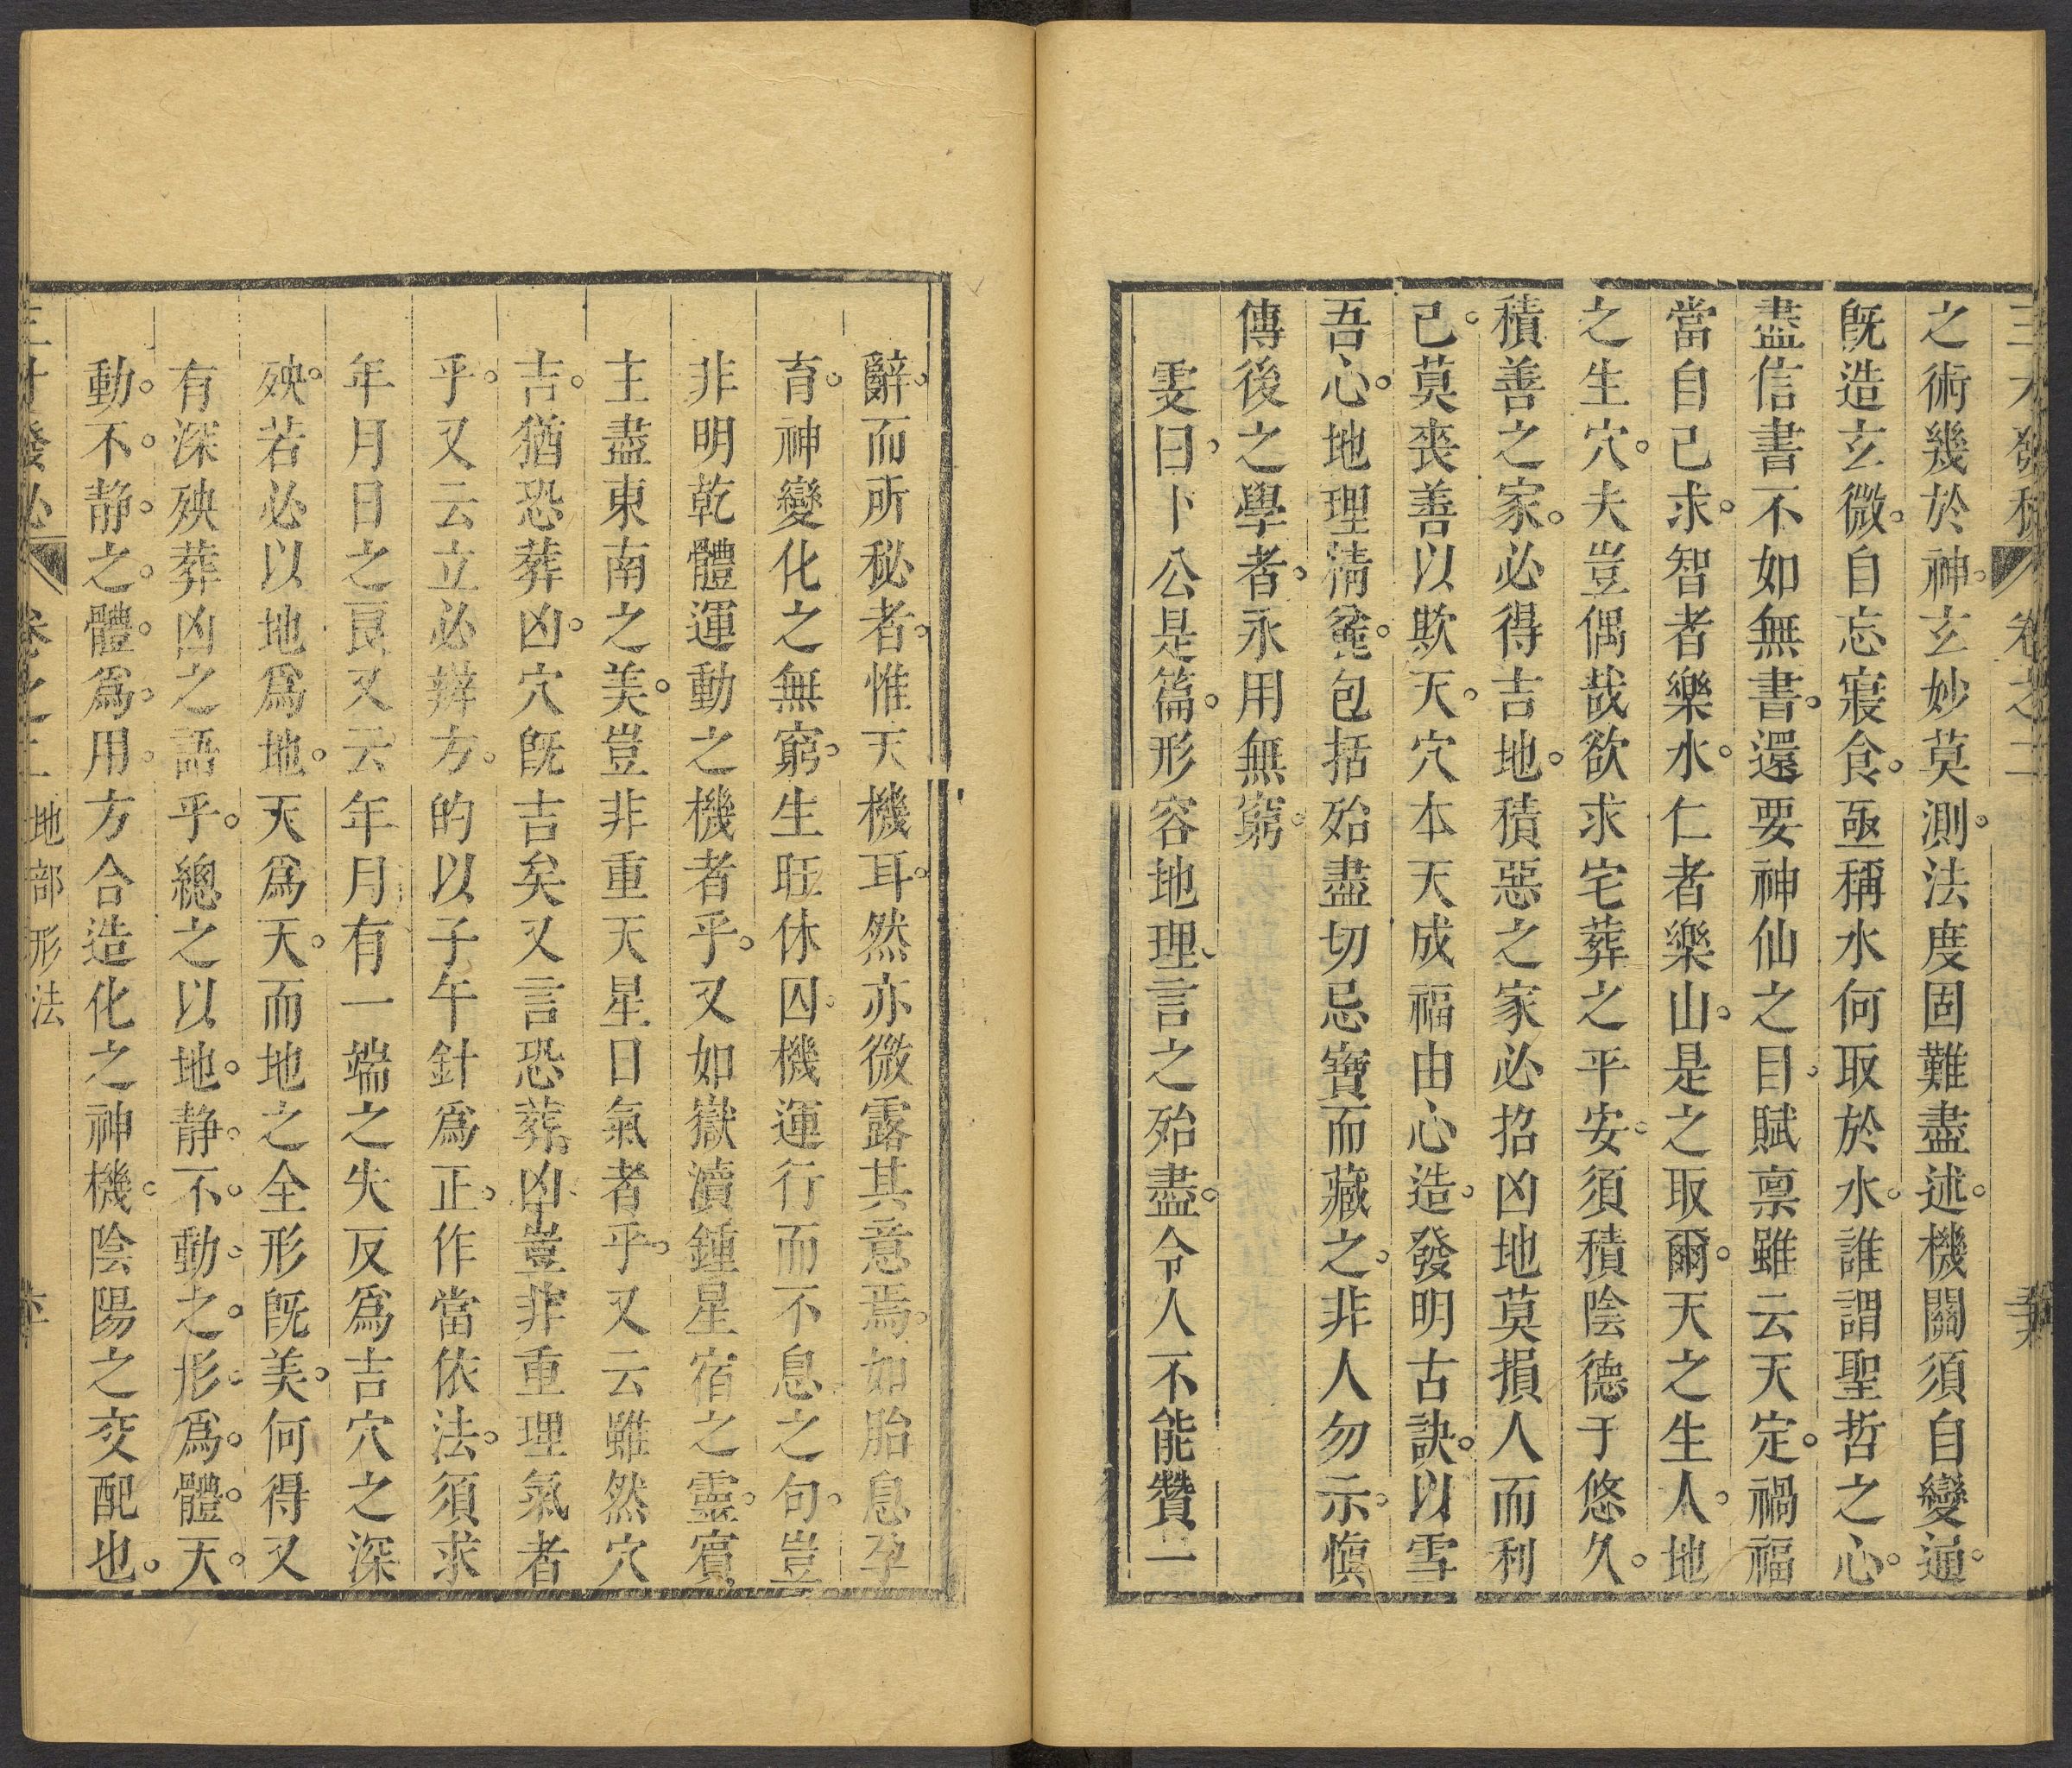 三才發秘 卷之二
之術幾於神。玄妙莫測。法度固難盡述。機關須自變通。
既造玄微。自忘寢食。亟稱水何取於水。誰謂聖哲之心。
盡信書不如無書。還要神仙之目。賦禀雖云天定。禍福
當自己求。智者樂水。仁者樂山。是之取爾。天之生人。地
之生穴。夫豈偶哉欲求宅葬之平安。須積陰德于悠久。
積善之家。必得吉地。積惡之家必招凶地莫損人而利
己。莫喪善以欺天。穴本天成福由心造。發明古訣。以雪
吾心。地理淸麄。包括殆盡切忌寶而藏之。非人勿示。愼
傳後之學者。永用無窮。
雯曰、卜公是篇。形容地理、言之殆盡。令人不能贊一
辭。而所秘者。惟天機耳。然亦微露其意焉。如胎息孕
育。神變化之無窮。生旺休囚。機運行而不息之句。豈
非明乾體運動之機者乎。又如嶽瀆鍾星宿之靈。賓
主盡東南之美。豈非重天星日氣者乎。又云雖然穴
吉。猶恐葬凶。穴既吉矣又言恐葬凶、豈非重理氣者
乎。又云立必辨方。的以子午針爲正。作當依法。須求
年月日之良又云年月有一端之失反爲吉穴之深
殃。若必以地爲地。天爲天。而地之全形既美。何得又
有深殃葬凶之語乎。總之以地。静。不。動。之。形。爲。體。天。
動。不。静。之。體。爲。用。方合造化之神機。陰陽之交配也。
三才發秘 卷之二 地部形法